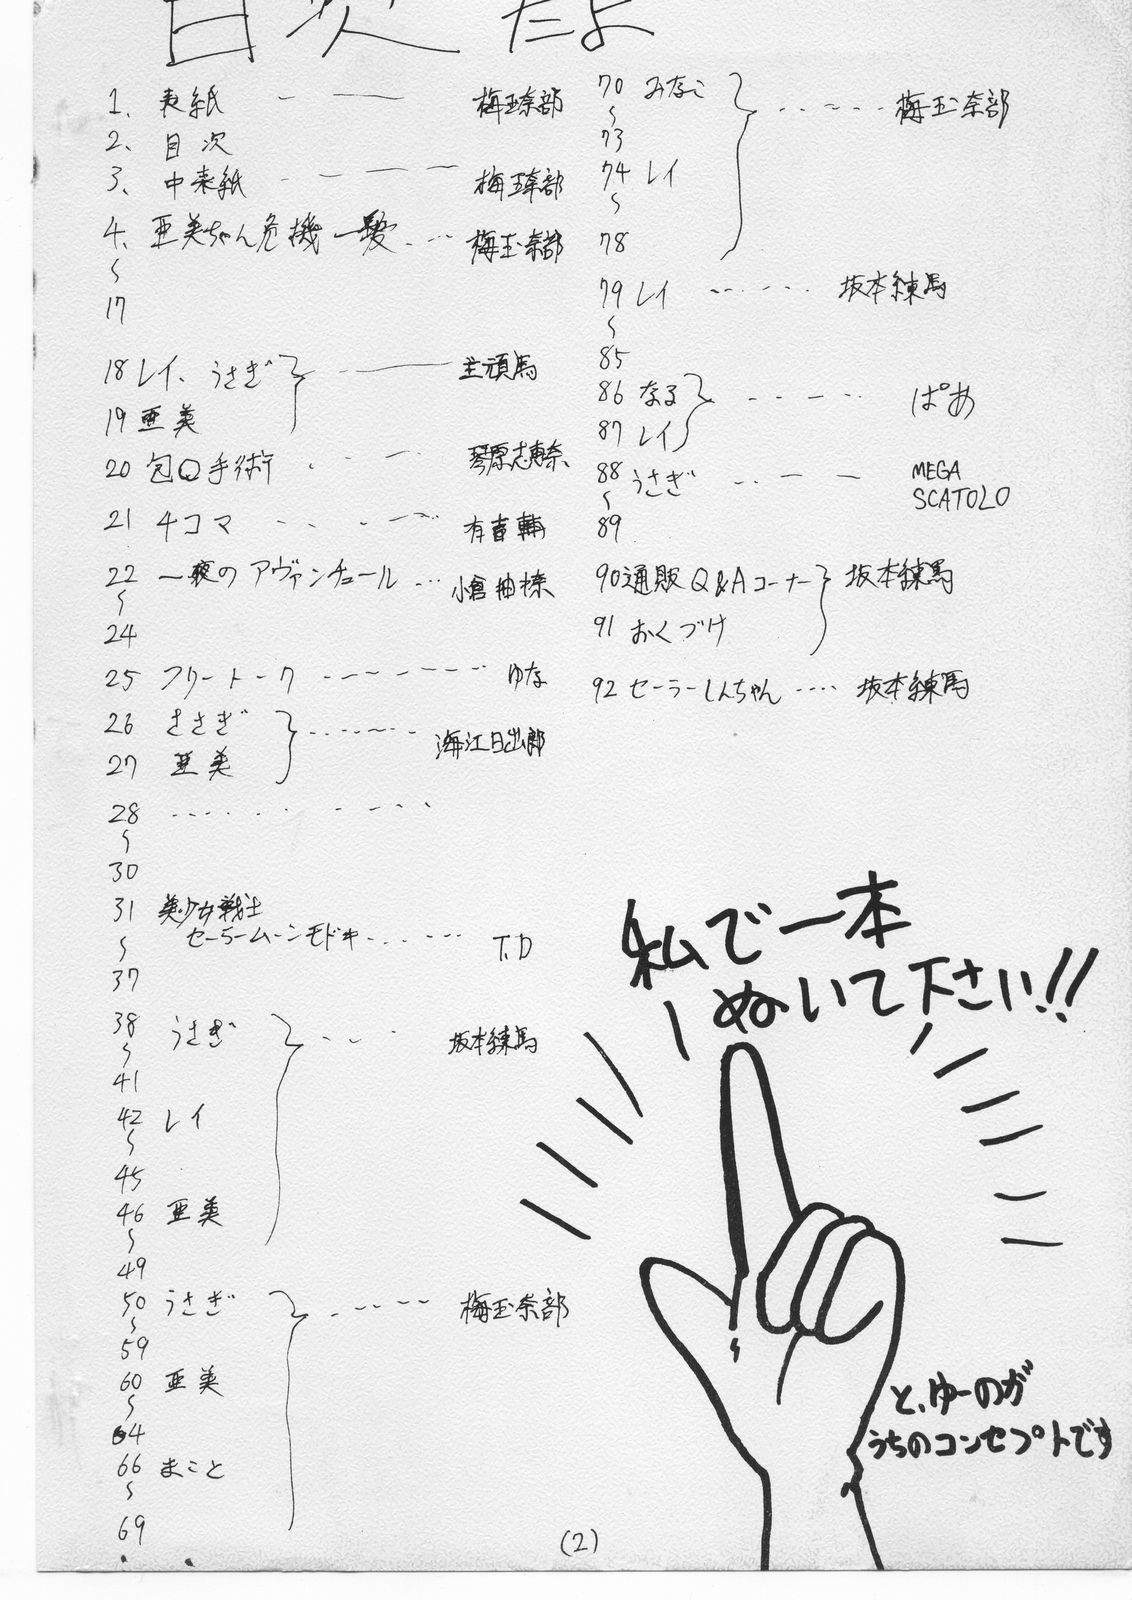 目次だよ
1、表紙 ー ―― 梅玉奈部
2、目次
3、中表紙 ------ 梅玉奈部
4、亜美ちゃん危機一髪 ... 梅玉奈部
〜
17
18 レイ、うさぎ ―― 主頑馬
19 亜美
20 包Q手術 ... 琴原志恵奈
21 4コマ ... 有音輔
22 一夜のアヴァンチュール ... 小倉柚榛
〜
24
25 フリートーク ------ ゆな
26 ささぎ ...... 海江日出郎
27 亜美
28 ...... ......
〜
30
31 美少女戦士
セーラームーンモドキ ...... T.D
〜
37
38 うさぎ ... 坂本練馬
〜
41
42 レイ
〜
45
46 亜美
〜
49
50 うさぎ ...... 梅玉奈部
〜
59
60 亜美
〜
64
66 まこと
〜
69
70 みなこ ...... 梅玉奈部
〜
73
74 レイ
〜
78
79 レイ ...... 坂本練馬
〜
85
86 なる ...... ぱあ
87 レイ
88 うさぎ ... MEGA
SCATOLO
〜
89
90 通販Q&Aコーナー 坂本練馬
91 おくづけ
92 セーラーしんちゃん .... 坂本練馬
私で一本
ぬいて下さい!!
と、ゆーのが
うちのコンセプトです
(2)